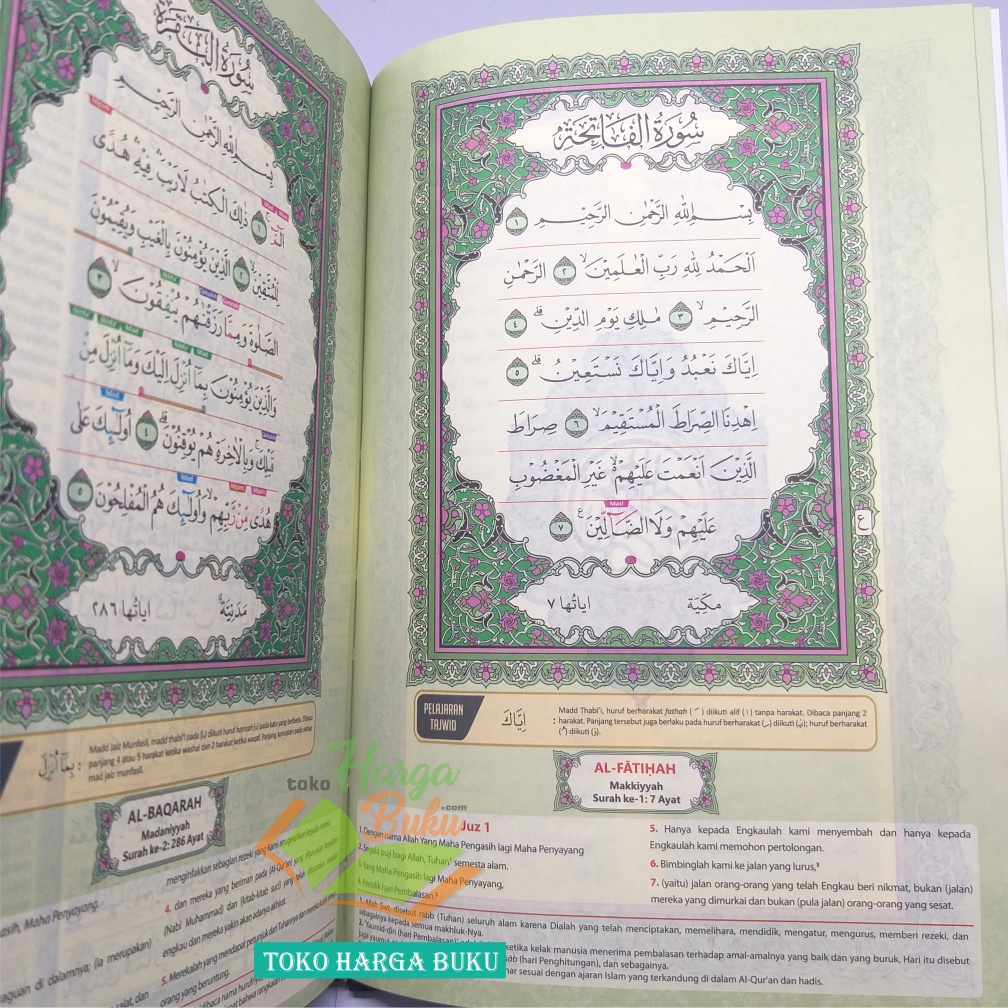 سُورَةُ الْفَاتِحَةِ
بِسْمِ اللّٰهِ الرَّحْمٰنِ الرَّحِيْمِ ١
اَلْحَمْدُ لِلّٰهِ رَبِّ الْعٰلَمِيْنَۙ ٢ الرَّحْمٰنِ
الرَّحِيْمِۙ ٣ مٰلِكِ يَوْمِ الدِّيْنِۗ ٤
اِيَّاكَ نَعْبُدُ وَاِيَّاكَ نَسْتَعِيْنُۗ ٥
اِهْدِنَا الصِّرَاطَ الْمُسْتَقِيْمَۙ ٦ صِرَاطَ
الَّذِيْنَ اَنْعَمْتَ عَلَيْهِمْ ەۙ غَيْرِ الْمَغْضُوْبِ
Mad
عَلَيْهِمْ وَلَا الضَّاۤلِّيْنَࣖ ٧
ع
مَكِّيَّة
اياتُها ٧
PELAJARAN TAJWID
اِيَّاكَ
Madd Thabi'i, huruf berharakat fathah (ـَ) diikuti alif (ا) tanpa harakat. Dibaca panjang 2
harakat. Panjang tersebut juga berlaku pada huruf berharakat (ـِ) diikuti (يْ); huruf berharakat
(ـُ) diikuti (وْ).
AL-FĀTIḤAH
Makkiyyah
Surah ke-1: 7 Ayat
Juz 1
1. Dengan nama Allah Yang Maha Pengasih lagi Maha Penyayang
2. Segala puji bagi Allah, Tuhan¹ semesta alam.
3. Yang Maha Pengasih lagi Maha Penyayang,
4. Pemilik hari Pembalasan.²
5. Hanya kepada Engkaulah kami menyembah dan hanya kepada
Engkaulah kami memohon pertolongan.
6. Bimbinglah kami ke jalan yang lurus,³
7. (yaitu) jalan orang-orang yang telah Engkau beri nikmat, bukan (jalan)
mereka yang dimurkai dan bukan (pula jalan) orang-orang yang sesat.
1. Allah Swt. disebut rabb (Tuhan) seluruh alam karena Dialah yang telah menciptakan, memelihara, mendidik, mengatur, mengurus, memberi rezeki, dan
sebagainya kepada semua makhluk-Nya.
2. Yaumid-dīn (hari Pembalasan) ketika kelak manusia menerima pembalasan terhadap amal-amalnya yang baik dan yang buruk. Hari itu disebut
(hari Penghitungan), dan sebagainya.
sesuai dengan ajaran Islam yang terkandung di dalam Al-Qur'an dan hadis.
سُورَةُ الْبَقَرَةِ
بِسْمِ اللّٰهِ الرَّحْمٰنِ الرَّحِيْمِ
الۤمّۤۚ ١ ذٰلِكَ الْكِتٰبُ لَا رَيْبَۛ فِيْهِۛ هُدًى
لِّلْمُتَّقِيْنَۙ ٢ الَّذِيْنَ يُؤْمِنُوْنَ بِالْغَيْبِ وَيُقِيْمُوْنَ
الصَّلٰوةَ وَمِمَّا رَزَقْنٰهُمْ يُنْفِقُوْنَۙ ٣
وَالَّذِيْنَ يُؤْمِنُوْنَ بِمَآ اُنْزِلَ اِلَيْكَ وَمَآ اُنْزِلَ مِنْ
قَبْلِكَۚ وَبِالْاٰخِرَةِ هُمْ يُوْقِنُوْنَۗ ٤ اُولٰۤىِٕكَ عَلٰى
هُدًى مِّنْ رَّبِّهِمْۙ وَاُولٰۤىِٕكَ هُمُ الْمُفْلِحُوْنَ ٥
مَدَنِيَّة
اياتُها ٢٨٦
بِمَآ اُنْزِلَ :
Madd Jaiz Munfasil, madd thabi'i pada diikuti huruf hamzah pada kata yang berbeda. Dibaca
panjang 4 atau 5 harakat ketika washal dan 2 harakat ketika waqaf. Panjang konsisten pada setiap
mad jaiz munfasil.
AL-BAQARAH
Madaniyyah
Surah ke-2: 286 Ayat
Maha Penyayang.
menginfakkan sebagian rezeki yang
4. dan mereka yang beriman pada (Al-Qur'an) yang
(Nabi Muhammad) dan (kitab-kitab suci) yang telah
engkau dan mereka yakin akan adanya akhirat.
5. Merekalah yang mendapat petunjuk dari Tuhannya dan
orang yang beruntung.
di dalamnya; (ia merupakan)
toko Harga Buku.com
TOKO HARGA BUKU